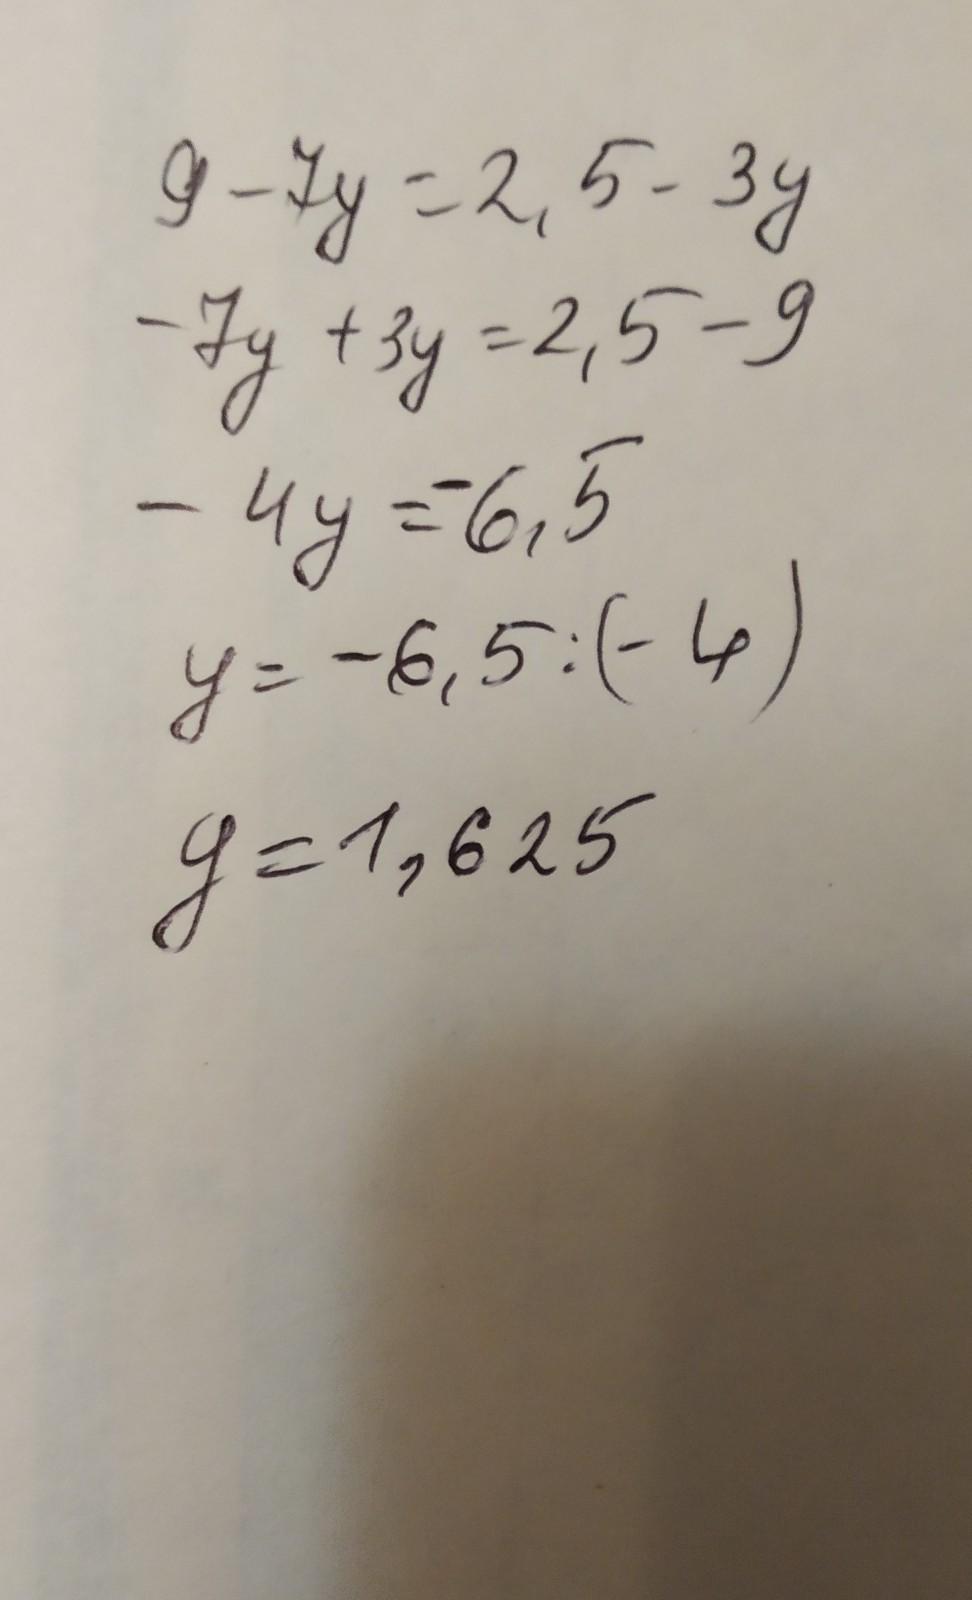 9 - 7y = 2,5 - 3y
-7y + 3y = 2,5 - 9
- 4y = -6,5
y = -6,5 : (- 4)
y = 1,625